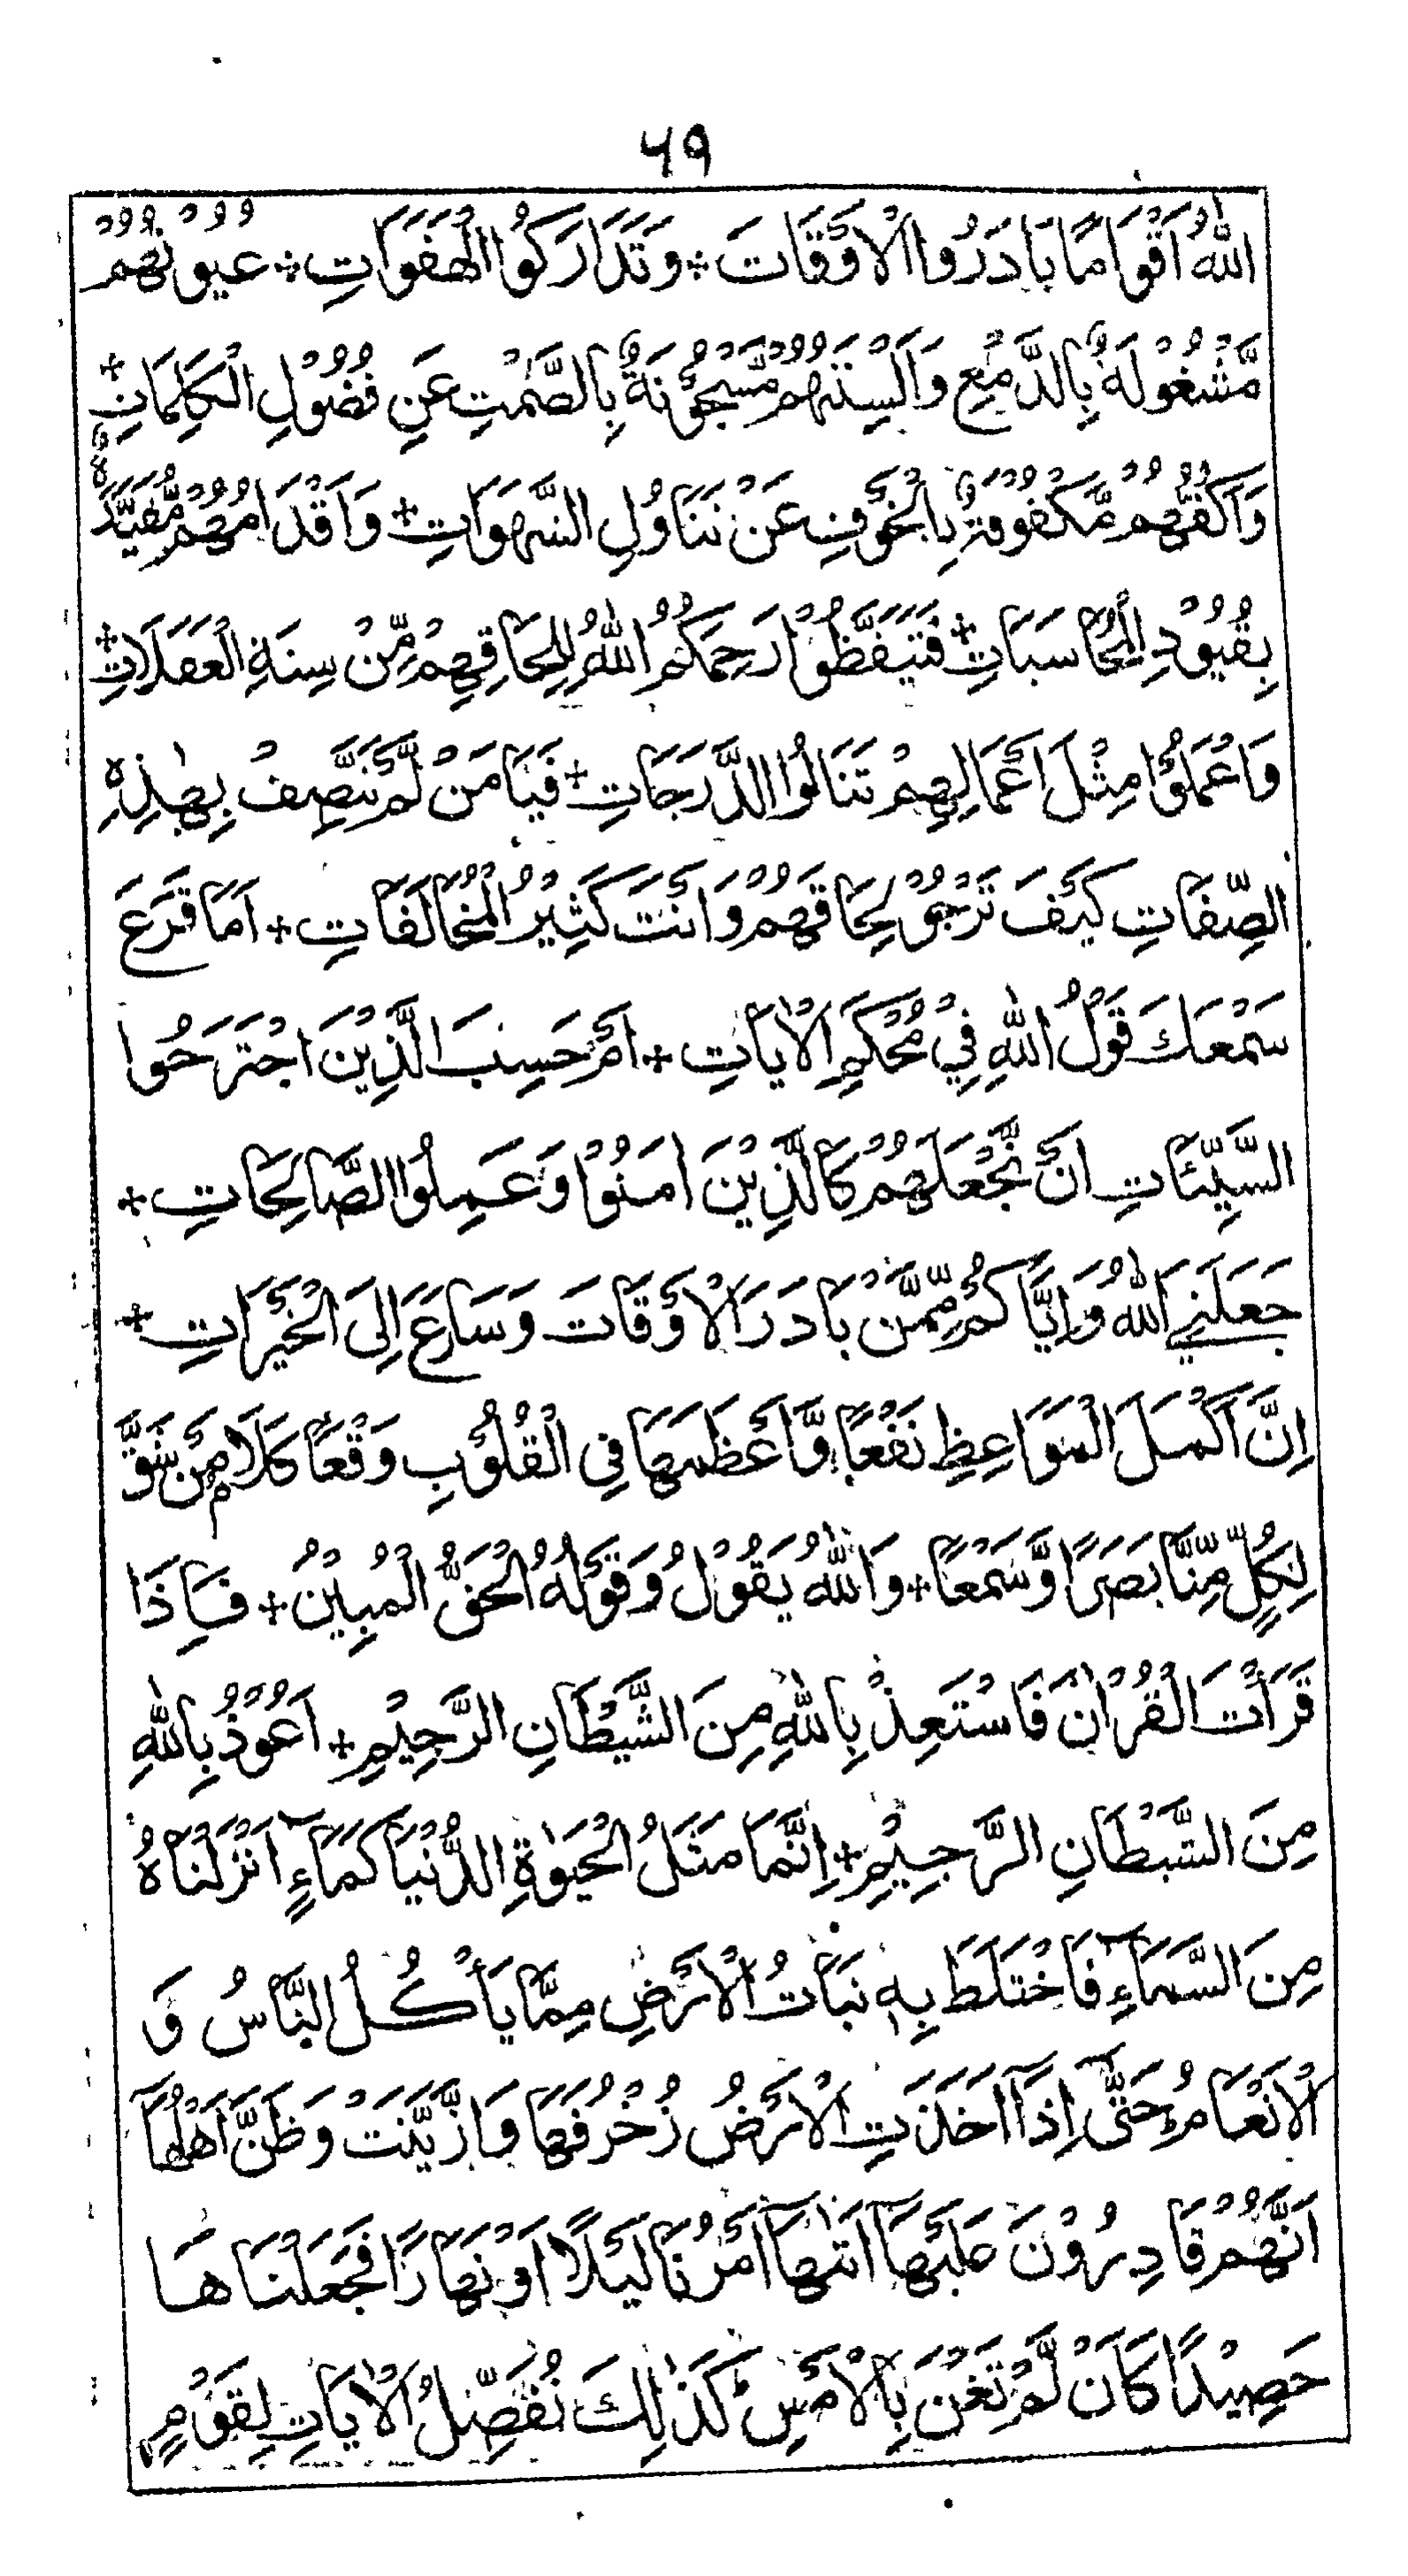 ۶۹
اللهُ اَقْوَامًا بَادَرُوا الْاَوْقَاتَ + وَتَدَارَكُوا الْهَفَوَاتِ + عُيُوْنُهُمْ
مَّشْغُوْلَةٌ بِالدَّمْعِ وَاَلْسِنَتُهُمْ مَّسْجُوْنَةٌ بِالصَّمْتِ عَنِ فُضُوْلِ الْكَلِمَاتِ +
وَاَكُفُّهُمْ مَّكْفُوْفَةٌ بِالْخَوْفِ عَنْ تَنَاوُلِ الشَّهَوَاتِ + وَاَقْدَامُهُمْ مُّقَيَّدَةٌ
بِقُيُوْدِ الْمُحَاسَبَاتِ + فَتَيَقَّظُوْا رَحِمَكُمُ اللهُ لِلِحَاقِهِمْ مِّنْ سِنَةِ الْغَفَلَاتِ +
وَاعْمَلُوْا مِثْلَ اَعْمَالِهِمْ تَنَالُوا الدَّرَجَاتِ + فَيَا مَنْ لَّمْ يَتَّصِفْ بِهٰذِهِ
الصِّفَاتِ كَيْفَ تَرْجُوْ لِحَاقَهُمْ وَاَنْتَ كَثِيْرُ الْمُخَالَفَاتِ + اَمَا قَرَعَ
سَمْعَكَ قَوْلُ اللهِ فِيْ مُحْكَمِ الْاٰيَاتِ + اَمْ حَسِبَ الَّذِيْنَ اجْتَرَحُوا
السَّيِّئَاتِ اَنْ نَّجْعَلَهُمْ كَالَّذِيْنَ اٰمَنُوْا وَعَمِلُوا الصَّالِحَاتِ +
جَعَلَنِيَ اللهُ وَاِيَّاكُمْ مِّمَّنْ بَادَرَ الْاَوْقَاتَ وَسَارَعَ اِلَى الْخَيْرَاتِ +
اِنَّ اَكْمَلَ الْمَوَاعِظِ نَفْعًا وَّاَعْظَمَهَا فِي الْقُلُوْبِ وَقْعًا كَلَامُ مَنْ شَقَّ
لِكُلٍّ مِّنَّا بَصَرًا وَّسَمْعًا + وَاللهُ يَقُوْلُ وَقَوْلُهُ الْحَقُّ الْمُبِيْنُ + فَاِذَا
قَرَاْتَ الْقُرْاٰنَ فَاسْتَعِذْ بِاللهِ مِنَ الشَّيْطَانِ الرَّجِيْمِ + اَعُوْذُ بِاللهِ
مِنَ الشَّيْطَانِ الرَّجِيْمِ + اِنَّمَا مَثَلُ الْحَيٰوةِ الدُّنْيَا كَمَآءٍ اَنْزَلْنَاهُ
مِنَ السَّمَآءِ فَاخْتَلَطَ بِهٖ نَبَاتُ الْاَرْضِ مِمَّا يَاْكُلُ النَّاسُ وَ
الْاَنْعَامُ حَتّٰى اِذَا اَخَذَتِ الْاَرْضُ زُخْرُفَهَا وَازَّيَّنَتْ وَظَنَّ اَهْلُهَا
اَنَّهُمْ قَادِرُوْنَ عَلَيْهَا اَتٰهَا اَمْرُنَا لَيْلًا اَوْ نَهَارًا فَجَعَلْنَاهَا
حَصِيْدًا كَاَنْ لَّمْ تَغْنَ بِالْاَمْسِ كَذٰلِكَ نُفَصِّلُ الْاٰيَاتِ لِقَوْمٍ